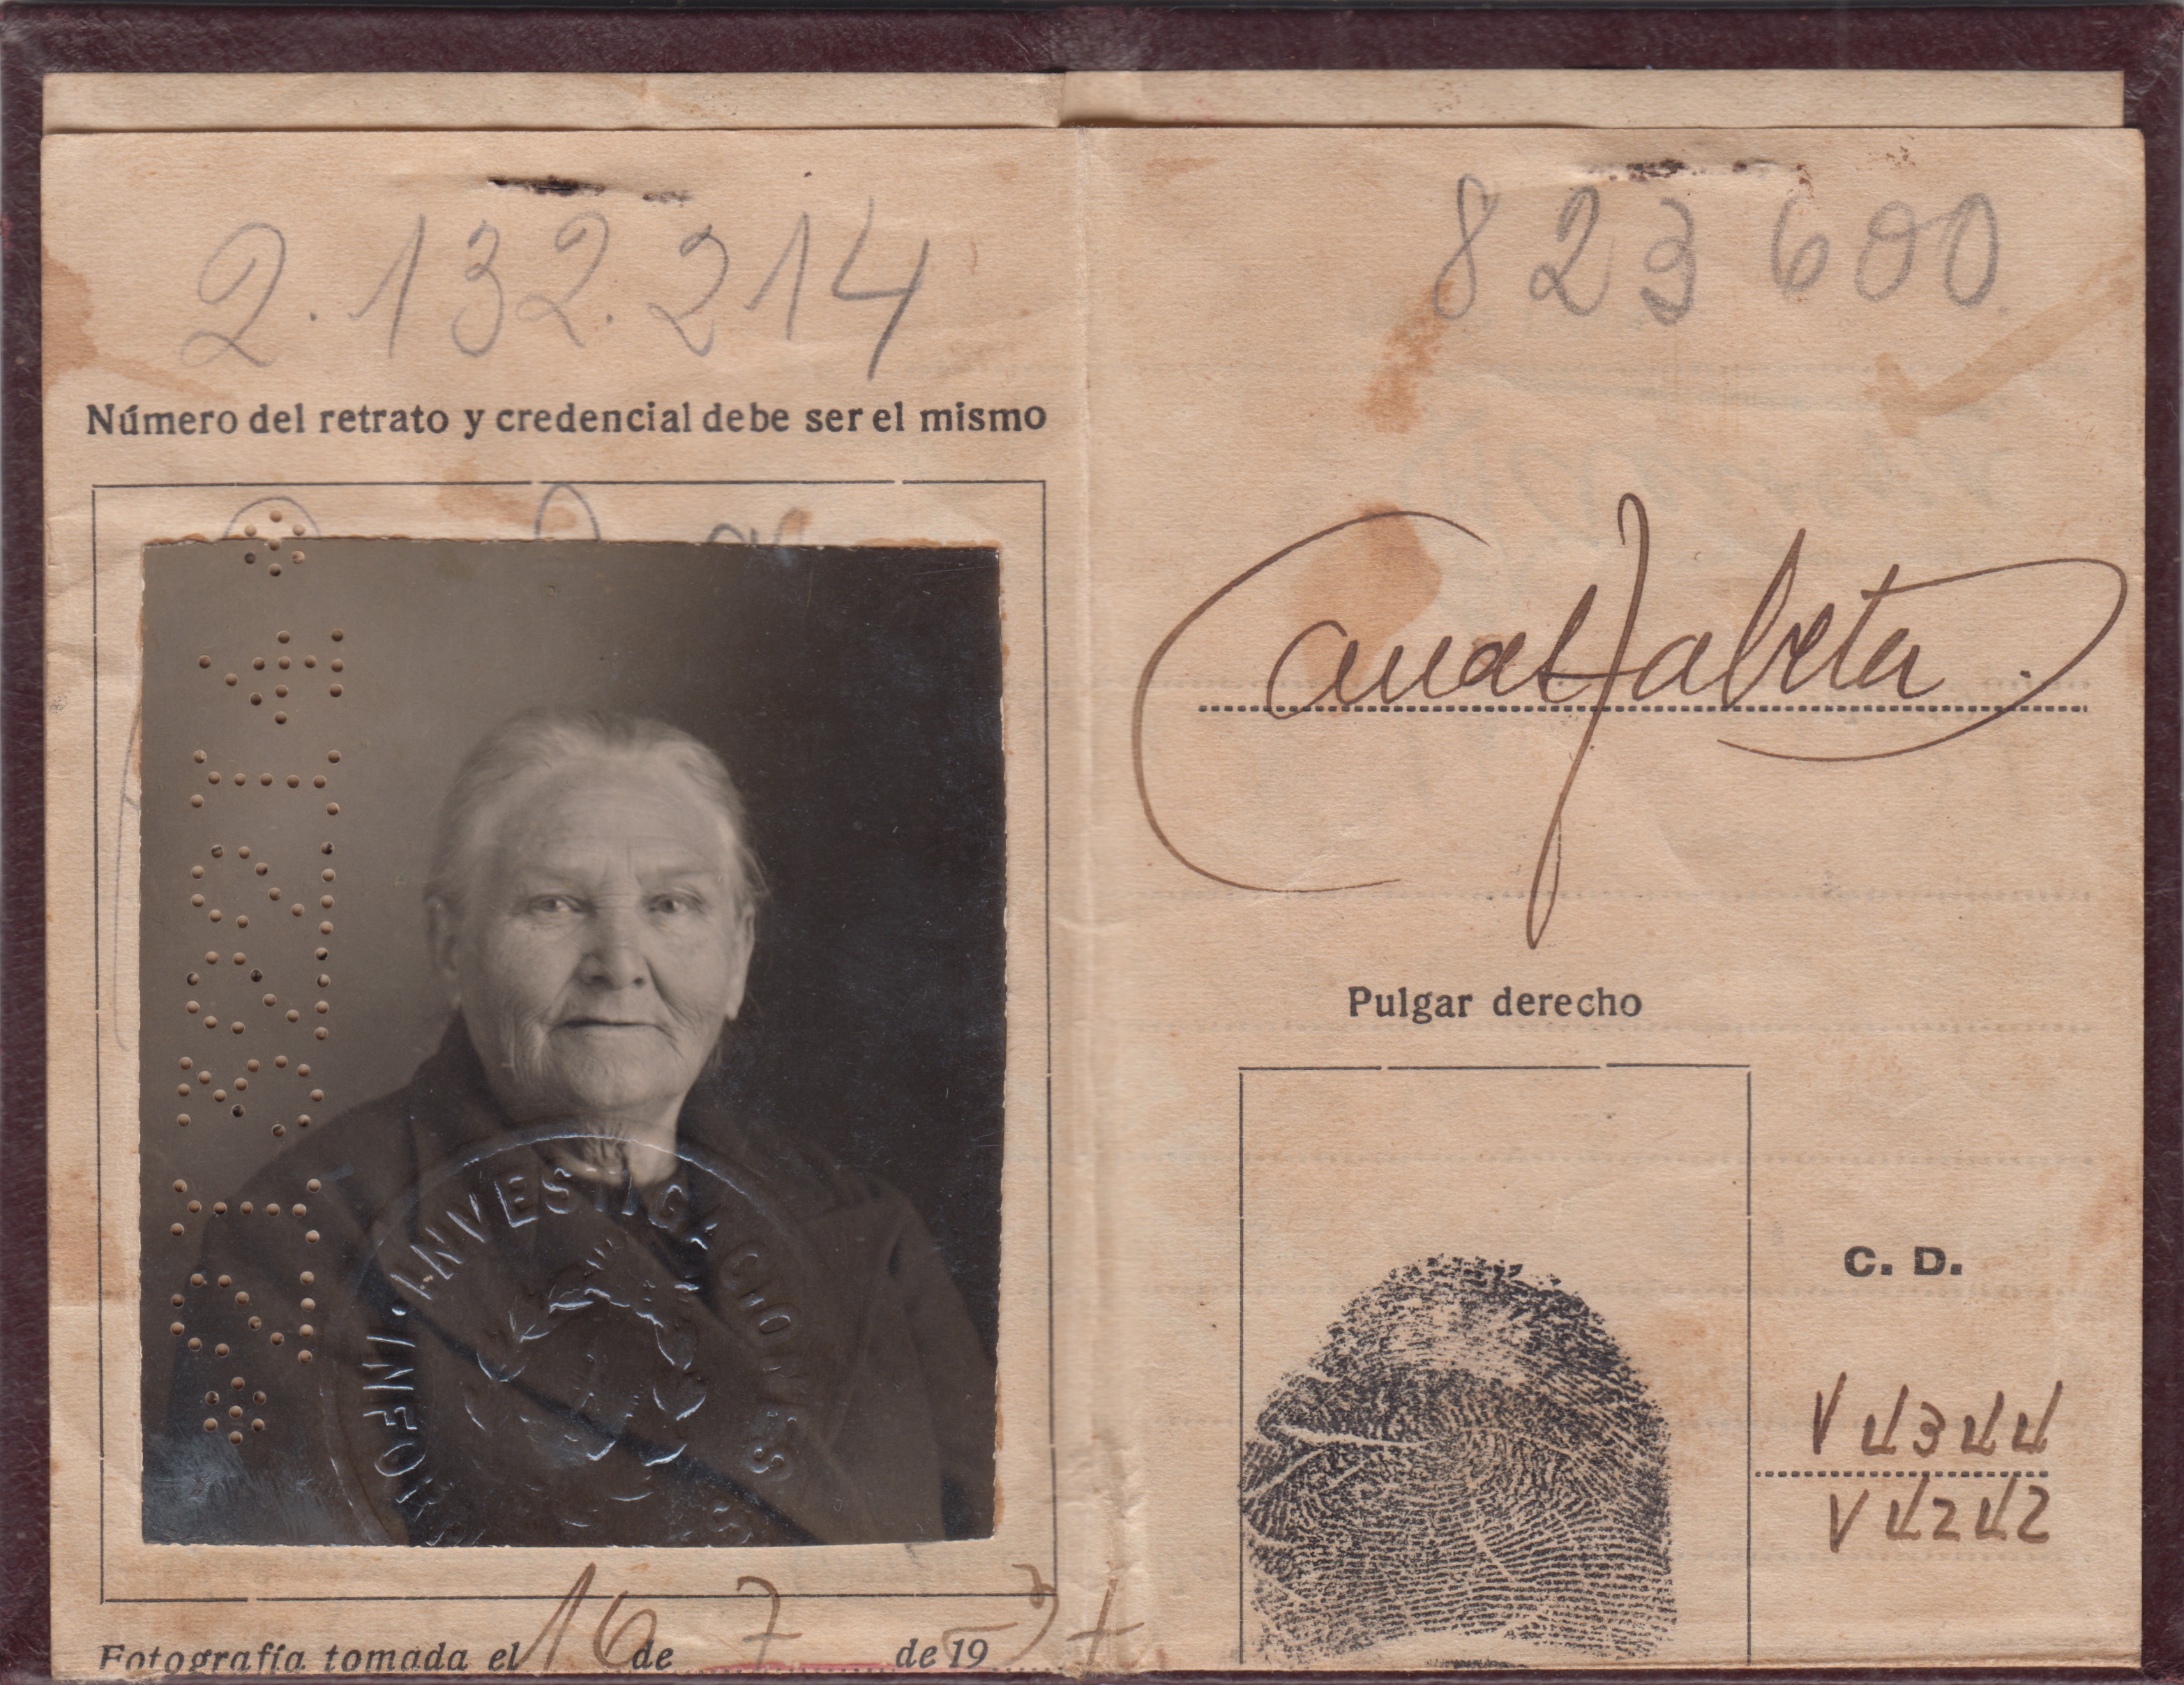 2.132.214
Número del retrato y credencial debe ser el mismo
2132214
INVESTIGACIONES
Fotografía tomada el 16 de 7 de 19 37
823600
Pulgar derecho
C. D.
V 4344
V 4242